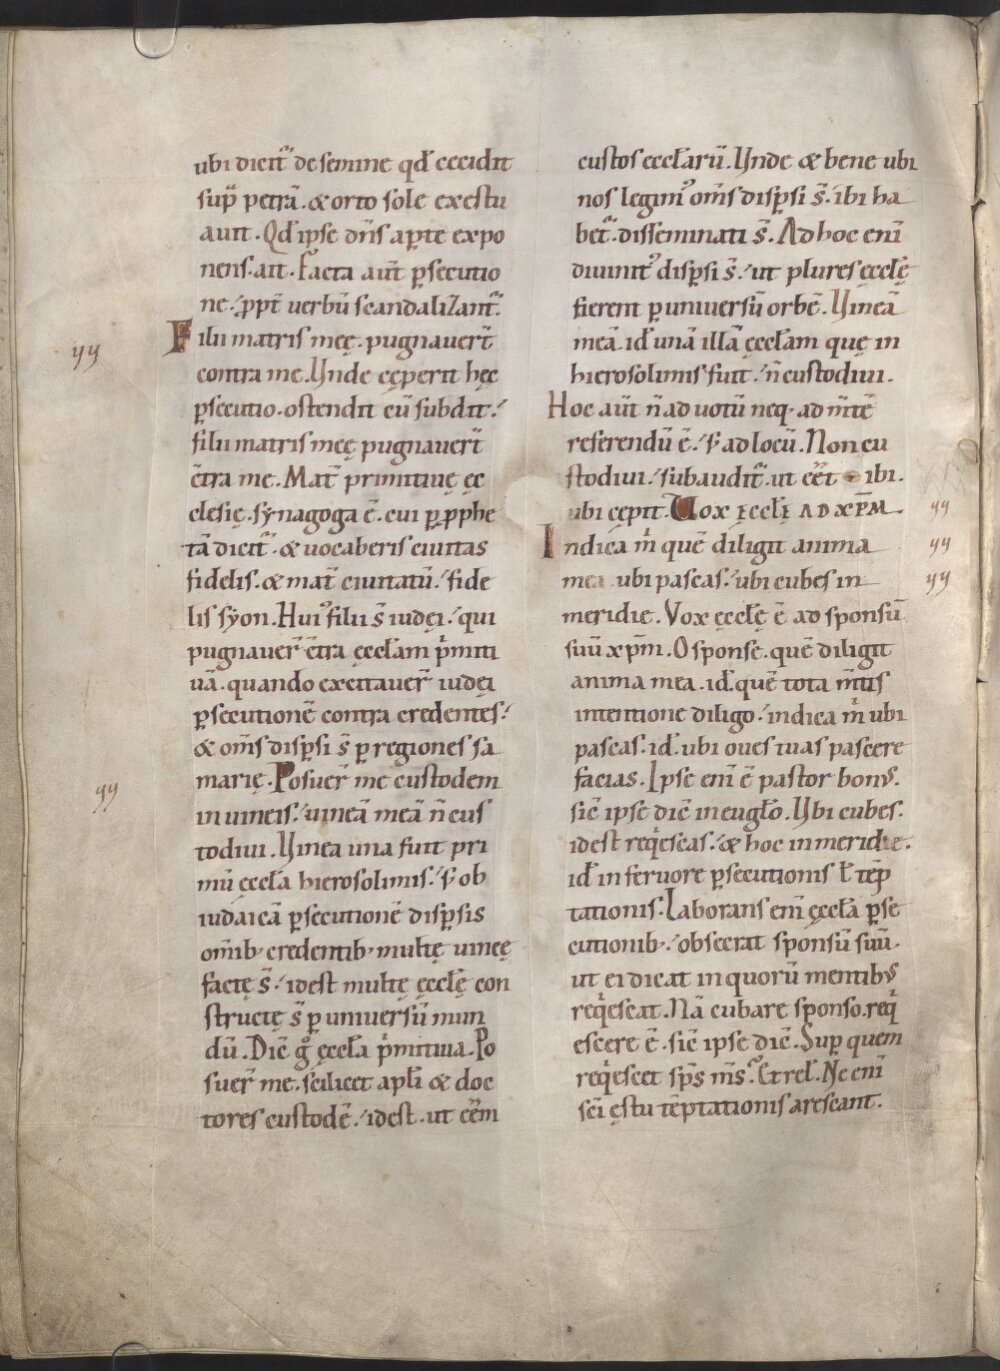 ubi dicit᷑ de semine qđ cecidit
sup̄ petrā. & orto sole exestu
auit. Qđ ipse dn̄s aꝑte expo
nens. ait. Facta aut̄ ꝑsecutio
ne. ꝓpt̄ verbū scandalizant᷑.
Filii matris meę. pugnavert̄
contra me. Unde cęperit hęc
ꝑsecutio. ostendit cū subdit.
filii matris meę pugnavert̄
c̄tra me. Mat̄ primitivę ęc
clesię. synagoga ē. cui ꝑ ꝓphe
tā dicit᷑. & vocaberis civitas
fidelis. & mat̄ civitatū. fide
lis syon. Huiꝰ filii s̄ iudęi. qui
pugnaver̄ c̄tra ęccłam p̄miti
vā. quando excitaver̄ iudęi
ꝑsecutionē contra credentes.
& om̄s disꝑsi s̄ ꝑ regiones sa
marię. Posuer̄ me custodem
in vineis. vineā meā n̄ cus
todivi. Vinea una fuit pri
mū ęccła hierosolimis. s; ob
iudaicā ꝑsecutionē disꝑsis
om̄ib; credentib; multę vineę
factę s̄. idest multę ęccłę con
structę s̄ ꝑ universū mun
dū. Dic̄ gͦ ęccła p̄mitiva. Po
suer̄ me. scilicet apłi & doc
tores custodē. idest. ut ēēm
custos eccłarū. Unde & bene ubi
nos legimꝰ om̄s disꝑsi s̄. ibi ha
bet᷑. disseminati s̄. Ad hoc enī
divinitꝰ disꝑsi s̄. ut plures ęccłę
fierent ꝑ universū orbē. Vineā
meā. iđ unā illā ęccłam quę in
hierosolimis fuit. n̄ custodivi.
Hoc aut̄ n̄ ad votū neq; ad m̄tē
referendū ē. s; ad locū. Non cu
stodivi. subaudit᷑. ut ēēt ibi.
ubi cępit. Vox ęccłę AD XP̄M.
Indica m̄ quē diligit anima
mea ubi pascas. ubi cubes in
meridie. Vox ęccłę ē ad sponsū
suū xp̄m. O sponse. quē diligit
anima mea. iđ. quē tota m̄tis
intentione diligo. indica m̄ ubi
pascas. iđ. ubi oves tuas pascere
facias. Ipse enī ē pastor bonꝰ.
sic̄ ipse dic̄ in eugło. Ubi cubes.
idest reqͥescas. & hoc in meridie.
iđ in fervore ꝑsecutionis ł tēp
tationis. Laborans enī ęccła ꝑse
cutionib; obsecrat sponsū suū.
ut ei dicat in quorū mentibꝰ
reqͥescat. Nā cubare sponso. reqͥ
escere ē. sic̄ ipse dic̄. Suꝑ quem
reqͥescet sp̄s m̄s. Et reł. Ne enī
sc̄i ęstu tēptationis arescant.
yy
yy
yy
yy
yy